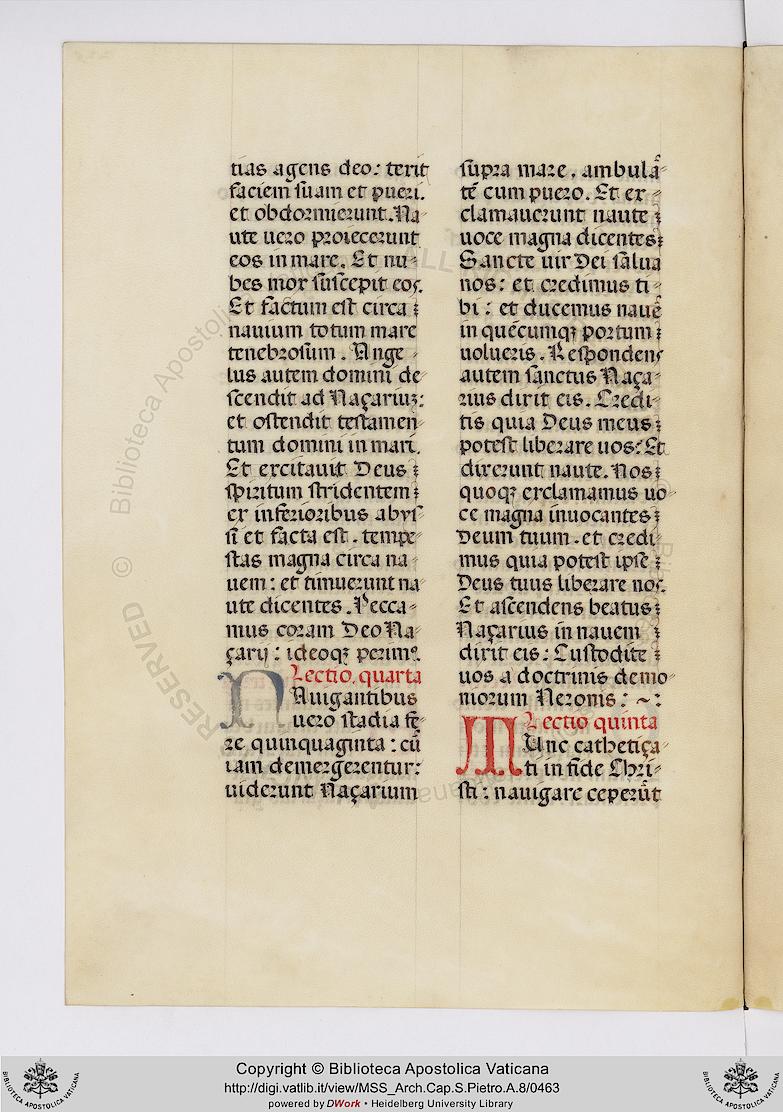 tias agens deo: terit
faciem suam et pueri.
et obdormierunt. Na-
ute uero proiecerunt
eos in mare. Et nu-
bes mox suscepit eos.
Et factum est circa
nauium totum mare
tenebrosum. Ange-
lus autem domini de-
scendit ad Naçarium:
et ostendit testamen-
tum domini in mari.
Et excitauit Deus
spiritum stridentem
ex inferioribus abys-
si et facta est. tempe-
stas magna circa na-
uem: et timuerunt na-
ute dicentes. Pecca-
mus coram Deo Na-
çarij: ideoqꝫ perimꝰ.
Lectio. quarta
NAuigantibus
uero stadia fe-
re quinquaginta: cū
iam demergerentur:
uiderunt Naçarium
supra mare. ambulā-
tē cum puero. Et ex-
clamauerunt naute
uoce magna dicentes:
Sancte uir Dei salua
nos: et credimus ti-
bi: et ducemus nauē
in quēcumqꝫ portum
uolueris. Respondens
autem sanctus Naça-
rius dixit eis. Credi-
tis quia Deus meus
potest liberare uos: Et
dixerunt naute. Nos
quoqꝫ exclamamus uo-
ce magna inuocantes
Deum tuum. et credi-
mus quia potest ipse
Deus tuus liberare nos.
Et ascendens beatus
Naçarius in nauem
dixit eis: Custodite
uos a doctrinis demo-
niorum Neronis: ~:
Lectio quinta
MUnc cathetiça-
ti in fide Chri-
sti: nauigare ceperūt
© Biblioteca Apostolica Vaticana
RESERVED
Copyright © Biblioteca Apostolica Vaticana
http://digi.vatlib.it/view/MSS_Arch.Cap.S.Pietro.A.8/0463
powered by DWork • Heidelberg University Library
BIBLIOTECA APOSTOLICA VATICANA
BIBLIOTECA APOSTOLICA VATICANA